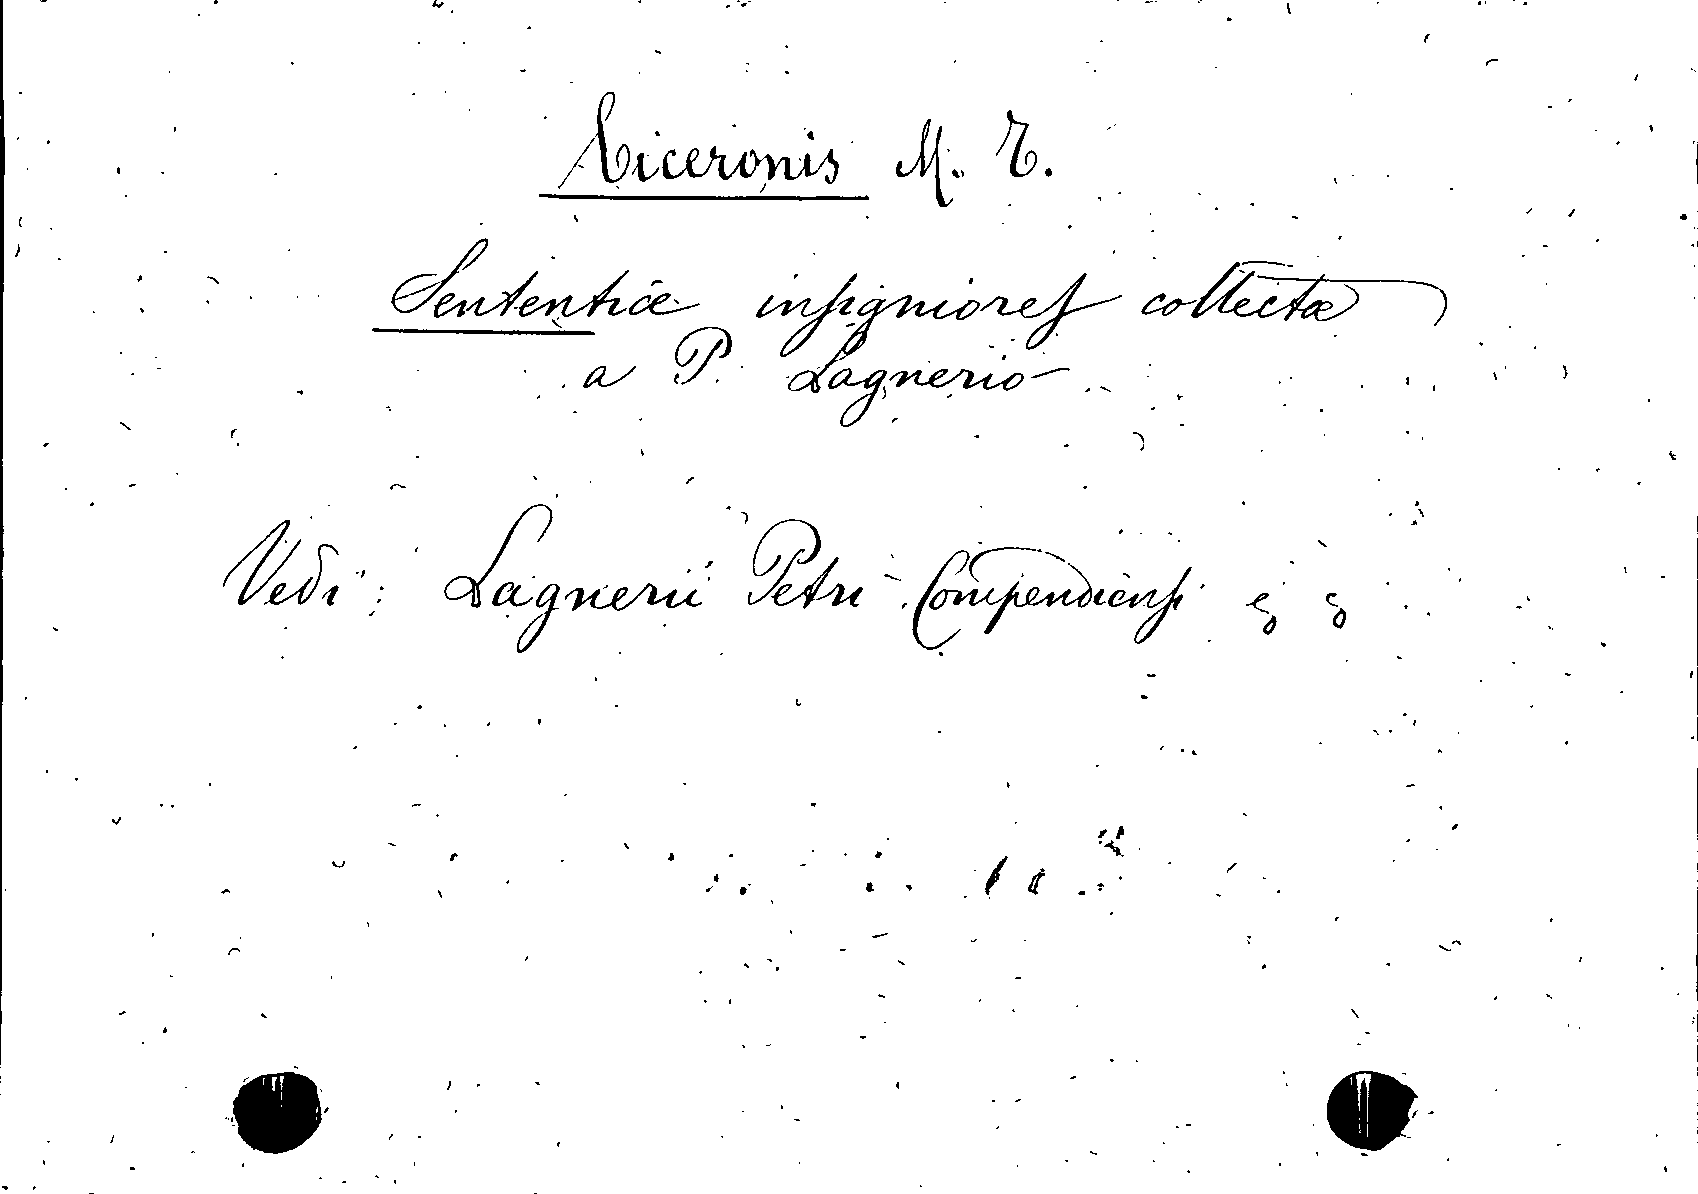 Ciceronis M. T.
Sententiæ insigniores collectæ
a P. Lagnerio
Vedi: Lagnerii Petri Compendiensi